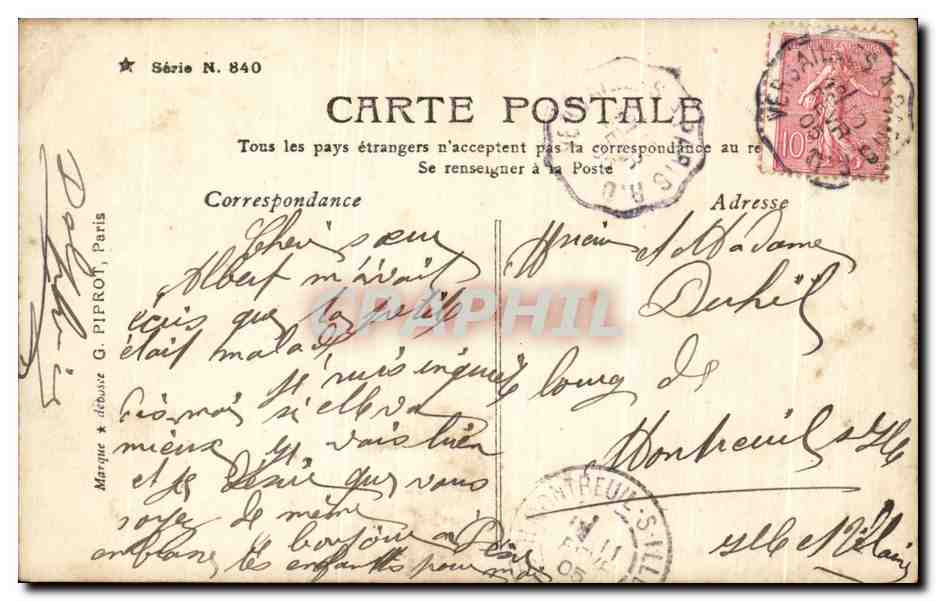 ★ Série N. 840
CARTE POSTALE
Tous les pays étrangers n'acceptent pas la correspondance au re
Se renseigner à la Poste
Correspondance
Adresse
Marque ★ déposée G. PIPROT, Paris
Cheri sœur
Albert m'avait
écris que la petite
était malade
je suis inquiete
dis-moi si elle va
mieux je vais bien
et je désire que vous
soyez de même
bonjour
embrasse les enfants pour moi
et Madame
Duheil
bourg de
Montreuil s Ille
Ille et Vilaine
CPAPHIL
VERSAILLES À PARIS R.D
VERSAILLES À PARIS R.D
FEVR
05
10
MONTREUIL-S-ILLE
11
FEVR
05